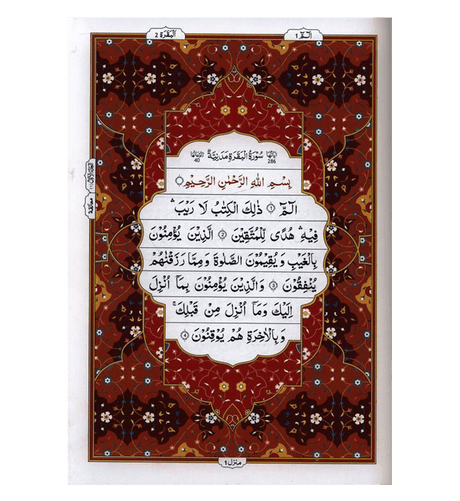 الٓمّٓ ١
اَلْبَقَرَة ٢
اٰیَاتُهَا ٢٨٦ سُوْرَةُ الْبَقَرَةِ مَدَنِیَّةٌ رُكُوْعَاتُهَا ٤٠
بِسْمِ اللّٰهِ الرَّحْمٰنِ الرَّحِیْمِ
الٓمّٓ ۚ﴿۱﴾ ذٰلِكَ الْكِتٰبُ لَا رَیْبَ ۛۚ
فِیْهِ ۛۚ هُدًی لِّلْمُتَّقِیْنَ ﴿۲﴾ الَّذِیْنَ یُؤْمِنُوْنَ
بِالْغَیْبِ وَ یُقِیْمُوْنَ الصَّلٰوةَ وَ مِمَّا رَزَقْنٰهُمْ
یُنْفِقُوْنَ ﴿۳﴾ وَ الَّذِیْنَ یُؤْمِنُوْنَ بِمَاۤ اُنْزِلَ
اِلَیْكَ وَ مَاۤ اُنْزِلَ مِنْ قَبْلِكَ ۚ
وَ بِالْاٰخِرَةِ هُمْ یُوْقِنُوْنَ ﴿۴﴾
منزل ١